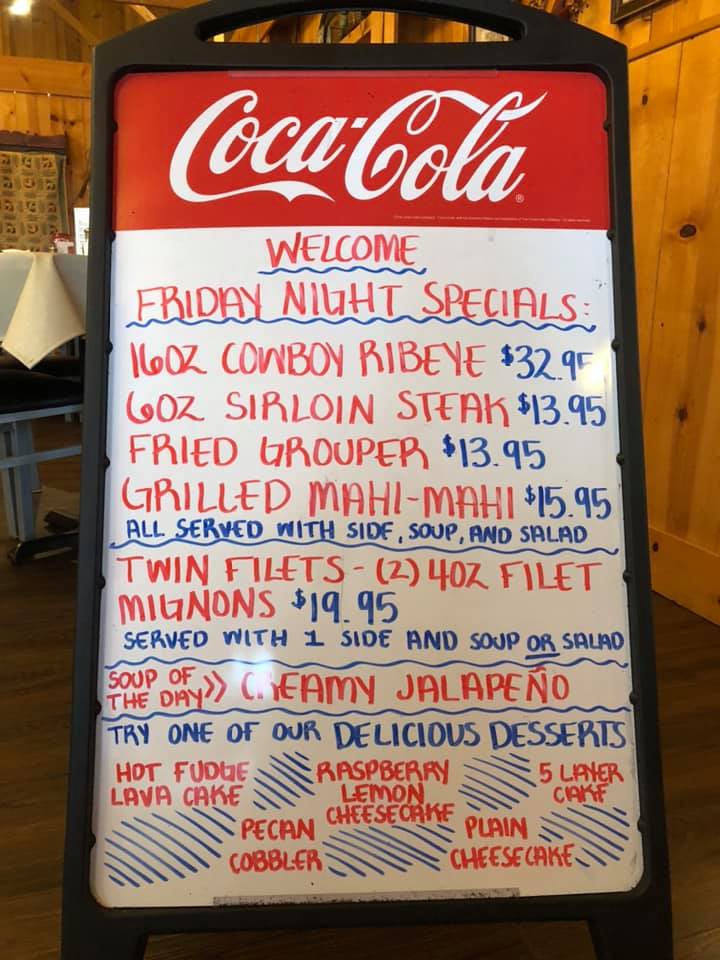 Coca-Cola
WELCOME
FRIDAY NIGHT SPECIALS:
16OZ COWBOY RIBEYE $32.95
6OZ SIRLOIN STEAK $13.95
FRIED GROUPER $13.95
GRILLED MAHI-MAHI $15.95
ALL SERVED WITH SIDE, SOUP, AND SALAD
TWIN FILETS - (2) 4OZ FILET
MIGNONS $19.95
SERVED WITH 1 SIDE AND SOUP OR SALAD
SOUP OF
THE DAY >> CREAMY JALAPEÑO
TRY ONE OF OUR DELICIOUS DESSERTS
HOT FUDGE
LAVA CAKE
RASPBERRY
LEMON
CHEESECAKE
5 LAYER
CAKE
PECAN
COBBLER
PLAIN
CHEESECAKE